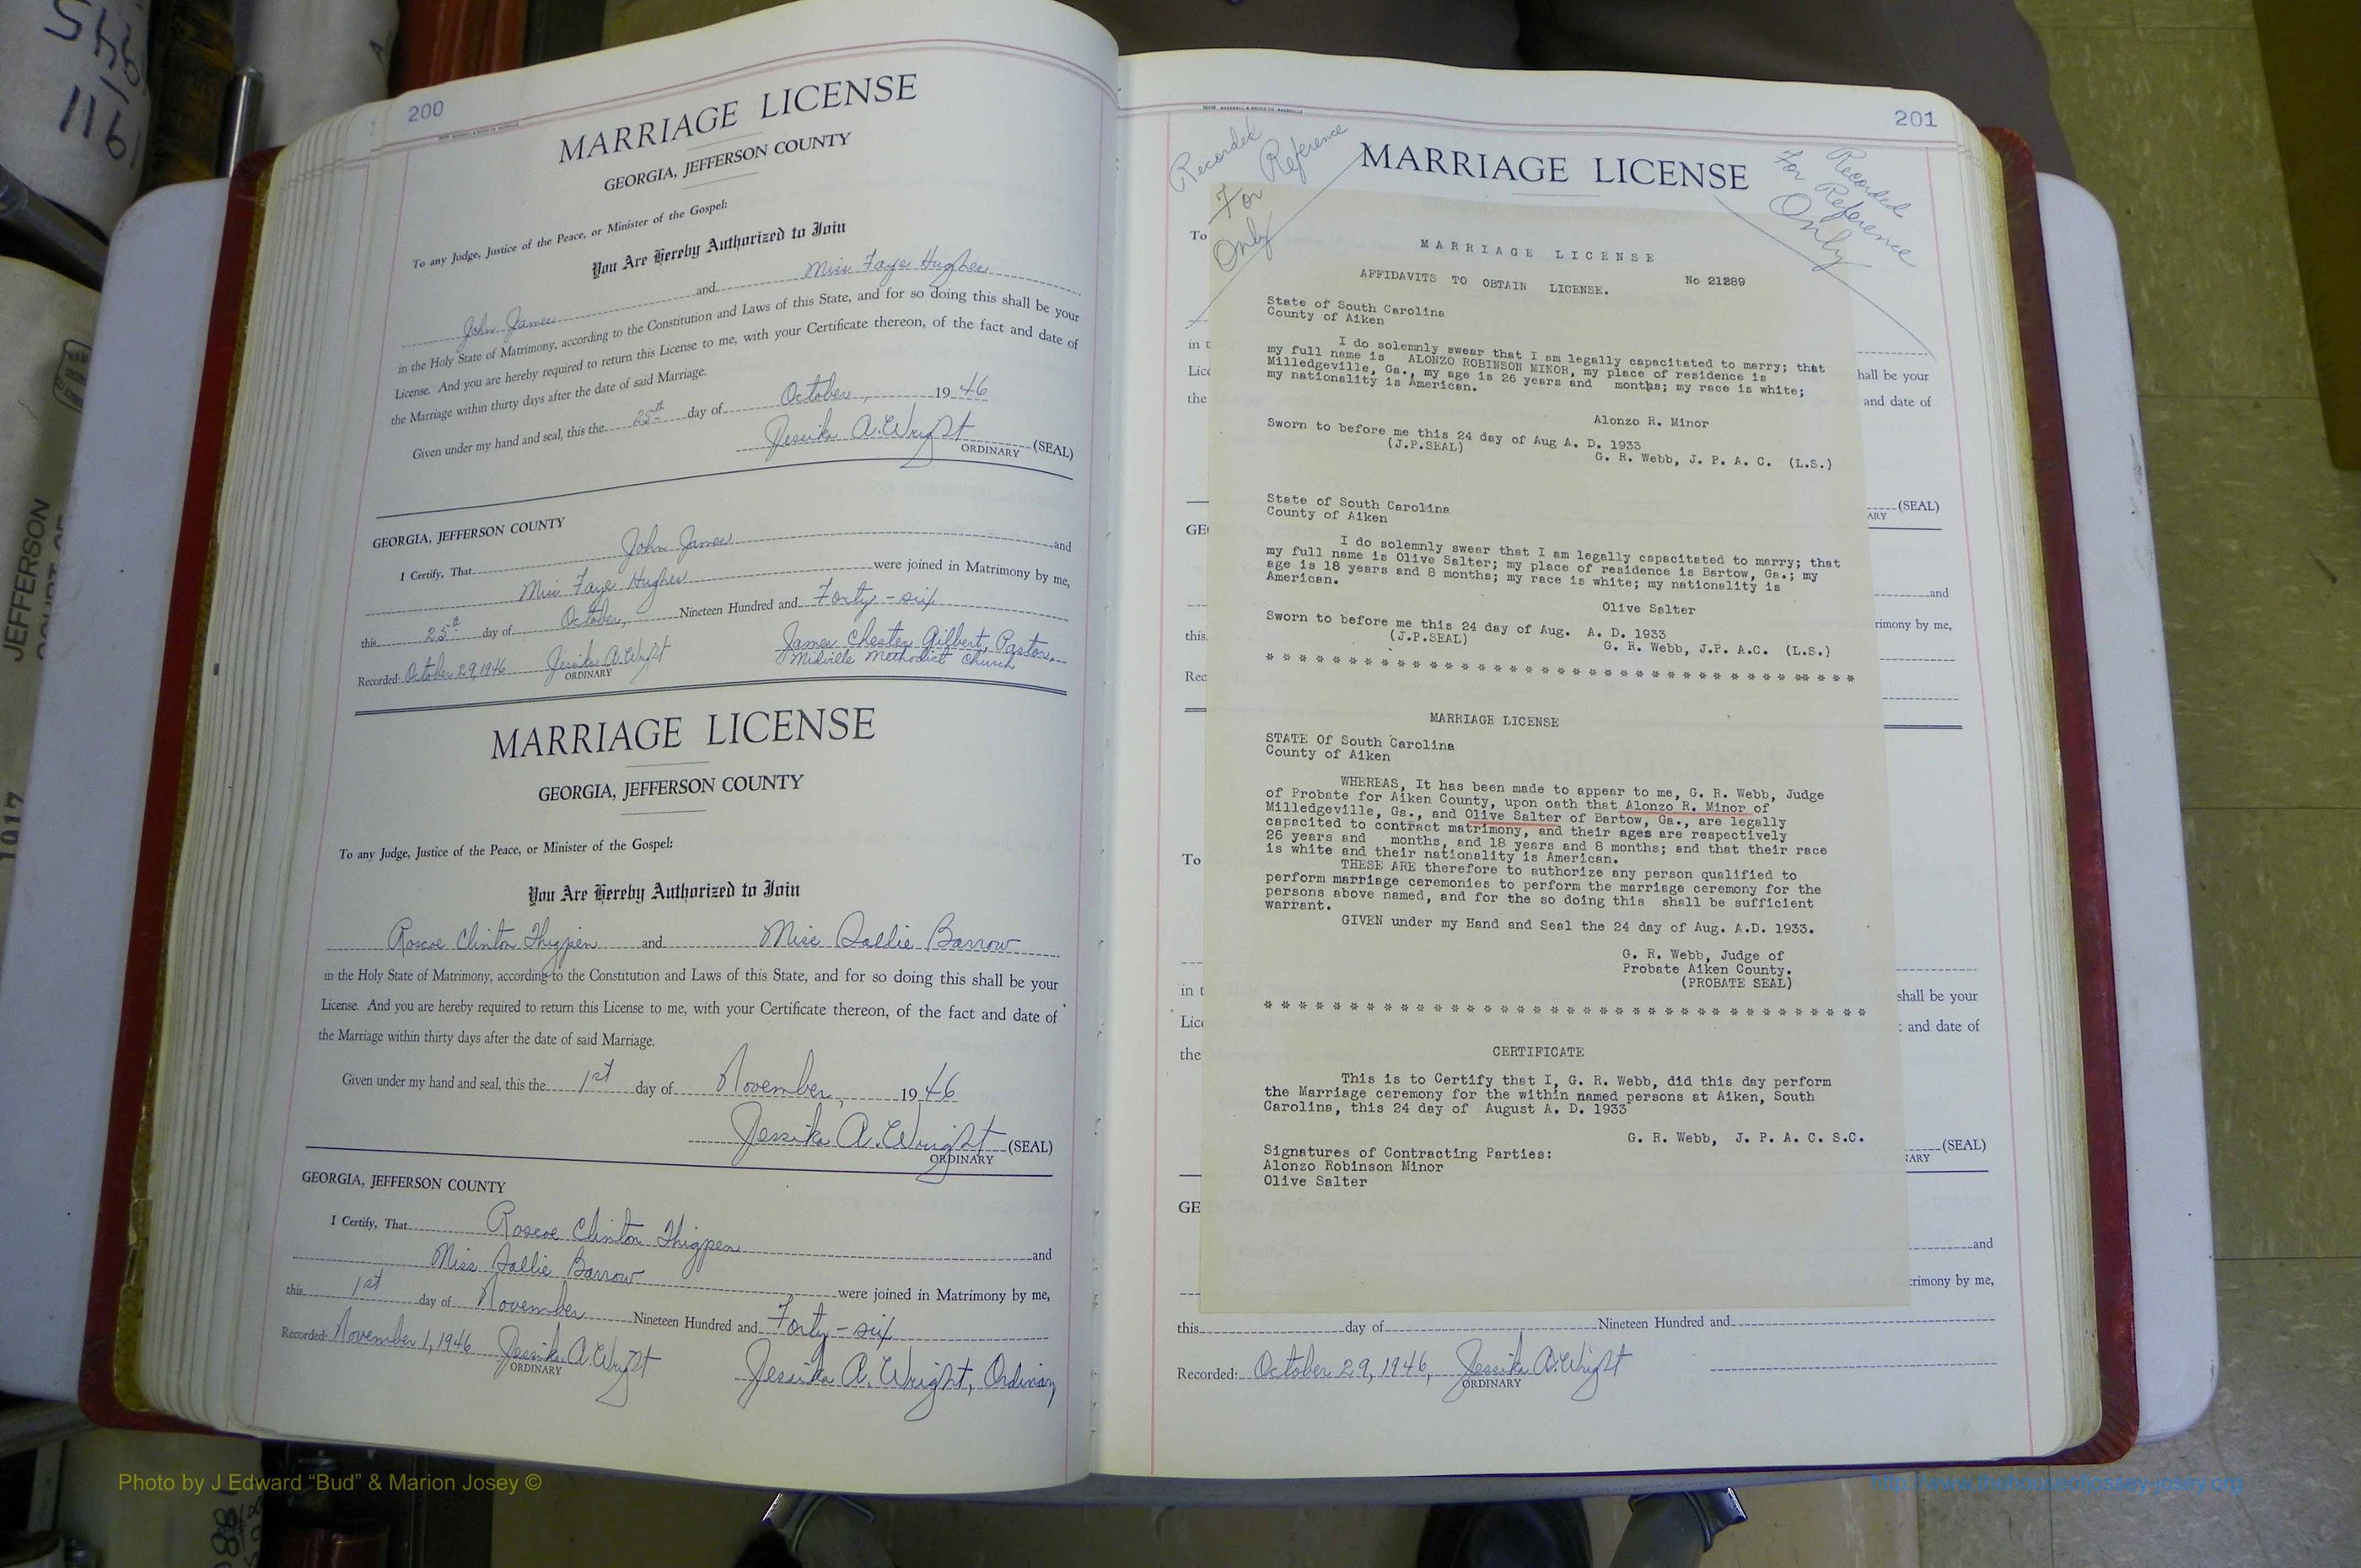 200
MARRIAGE LICENSE
GEORGIA, JEFFERSON COUNTY
To any Judge, Justice of the Peace, or Minister of the Gospel:
You Are Hereby Authorized to Join
John James and Miss Faye Hughes
in the Holy State of Matrimony, according to the Constitution and Laws of this State, and for so doing this shall be your
License. And you are hereby required to return this License to me, with your Certificate thereon, of the fact and date of
the Marriage within thirty days after the date of said Marriage.
Given under my hand and seal, this the 25th day of October, 1946
Jessika A. Wright (SEAL)
ORDINARY
GEORGIA, JEFFERSON COUNTY
I Certify, That John James and
Miss Faye Hughes were joined in Matrimony by me,
this 25th day of October, Nineteen Hundred and Forty-six
James Chester Gilbert, Pastor,
Recorded: October 29, 1946 Jessika A. Wright Midville Methodist Church
ORDINARY
MARRIAGE LICENSE
GEORGIA, JEFFERSON COUNTY
To any Judge, Justice of the Peace, or Minister of the Gospel:
You Are Hereby Authorized to Join
Roscoe Clinton Thigpen and Miss Sallie Barrow
in the Holy State of Matrimony, according to the Constitution and Laws of this State, and for so doing this shall be your
License. And you are hereby required to return this License to me, with your Certificate thereon, of the fact and date of
the Marriage within thirty days after the date of said Marriage.
Given under my hand and seal, this the 1st day of November, 1946
Jessika A. Wright (SEAL)
ORDINARY
GEORGIA, JEFFERSON COUNTY
I Certify, That Roscoe Clinton Thigpen and
Miss Sallie Barrow were joined in Matrimony by me,
this 1st day of November Nineteen Hundred and Forty-six
Recorded: November 1, 1946 Jessika A. Wright Jessika A. Wright, Ordinary
ORDINARY
201
Recorded
For Reference
Only
MARRIAGE LICENSE
Recorded
For Reference
Only
MARRIAGE LICENSE
AFFIDAVITS TO OBTAIN LICENSE. No 21289
State of South Carolina
County of Aiken
I do solemnly swear that I am legally capacitated to marry; that
my full name is ALONZO ROBINSON MINOR, my place of residence is
Milledgeville, Ga., my age is 26 years and months; my race is white;
my nationality is American.
Alonzo R. Minor
Sworn to before me this 24 day of Aug A. D. 1933
(J.P.SEAL)
G. R. Webb, J. P. A. C. (L.S.)
State of South Carolina
County of Aiken
I do solemnly swear that I am legally capacitated to marry; that
my full name is Olive Salter; my place of residence is Bartow, Ga.; my
age is 18 years and 8 months; my race is white; my nationality is
American.
Olive Salter
Sworn to before me this 24 day of Aug. A. D. 1933
(J.P.SEAL)
G. R. Webb, J.P. A.C. (L.S.)
* * * * * * * * * * * * * * * * * * * * * * * * * * * * * * ** * * *
MARRIAGE LICENSE
STATE Of South Carolina
County of Aiken
WHEREAS, It has been made to appear to me, G. R. Webb, Judge
of Probate for Aiken County, upon oath that Alonzo R. Minor of
Milledgeville, Ga., and Olive Salter of Bartow, Ga., are legally
capacited to contract matrimony, and their ages are respectively
26 years and months, and 18 years and 8 months; and that their race
is white and their nationality is American.
THESE ARE therefore to authorize any person qualified to
perform marriage ceremonies to perform the marriage ceremony for the
persons above named, and for the so doing this shall be sufficient
warrant.
GIVEN under my Hand and Seal the 24 day of Aug. A.D. 1933.
G. R. Webb, Judge of
Probate Aiken County.
(PROBATE SEAL)
* * * * * * * * * * * * * * * * * * * * * * * * * * * * * * * * * * *
CERTIFICATE
This is to Certify that I, G. R. Webb, did this day perform
the Marriage ceremony for the within named persons at Aiken, South
Carolina, this 24 day of August A. D. 1933
G. R. Webb, J. P. A. C. S.C.
Signatures of Contracting Parties:
Alonzo Robinson Minor
Olive Salter
To
in t
Lice hall be your
the and date of
(SEAL)
ARY
GE
and
this rimony by me,
Rec
To
in t shall be your
Lice and date of
the
(SEAL)
ARY
GE
and
rimony by me,
this day of Nineteen Hundred and
Recorded: October 29, 1946, Jessika A. Wright
ORDINARY
116
JEFFERSON
1917
Photo by J Edward “Bud” & Marion Josey ©